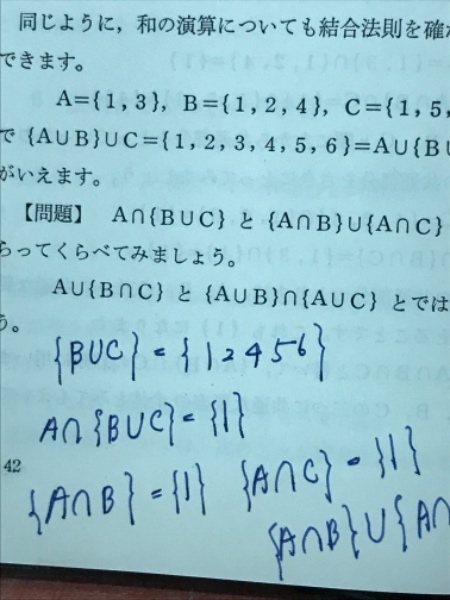 同じように，和の演算についても結合法則を確か
できます。
A={1，3}，B={1，2，4}，C={1，5，
で {A∪B}∪C={1，2，3，4，5，6}=A∪{B∪
がいえます。
【問題】 A∩{B∪C} と {A∩B}∪{A∩C}
らってくらべてみましょう。
A∪{B∩C} と {A∪B}∩{A∪C} とでは
う。
{B∪C} = {1 2 4 5 6}
A∩{B∪C} = {1}
42
{A∩B} = {1} {A∩C} = {1}
{A∩B} ∪ {A∩